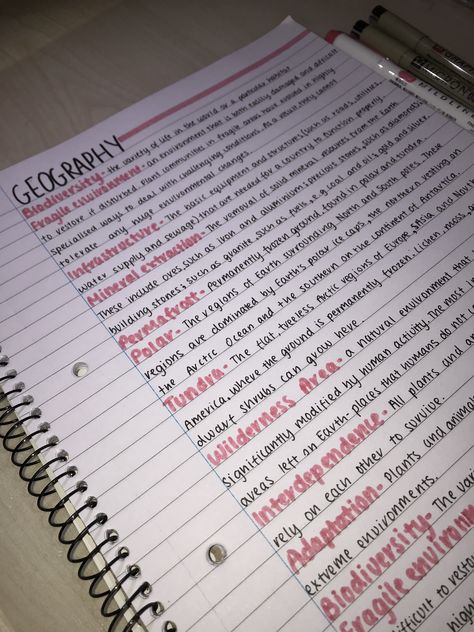 GEOGRAPHY
Biodiversity- The variety of life in the world or a particular habitat
Fragile environment- an environment that is both easily damaged and difficult
to restore if disturbed. Plant communities in fragile areas have evolved in highly
specialised ways to deal with challenging conditions. As a result they cannot
tolerate any huge environmental changes.
Infrastructure- The basic equipment and structures (such as roads, utilities,
water supply and sewage) that are needed for a country to function properly
Mineral extraction- The removal of solid mineral resources from the earth.
These include ores such as iron and aluminium; precious stones, such as diamonds;
building stones, such as granite, such as fuels, e.g. coal and oil; gold and silver.
Permafrost- Permanently frozen ground found in polar and tundra
Polar- The regions of Earth surrounding North and South poles. These
regions are dominated by Earth's polar ice caps, the northern resting on
the Arctic Ocean and the southern on the continent of Antarctica.
Tundra- The flat, treeless Arctic regions of Europe, and North
America, where the ground is permanently frozen. Lichen, moss,
dwarf shrubs can grow here
Wilderness Area- a natural environment that
significantly modified by human activity. The most
areas left on Earth- places that humans do not
Interdependence- All plants and
rely on each other to survive.
Adaptation- plants and animals
extreme environments.
Biodiversity- The
Fragile environm
difficult to resto